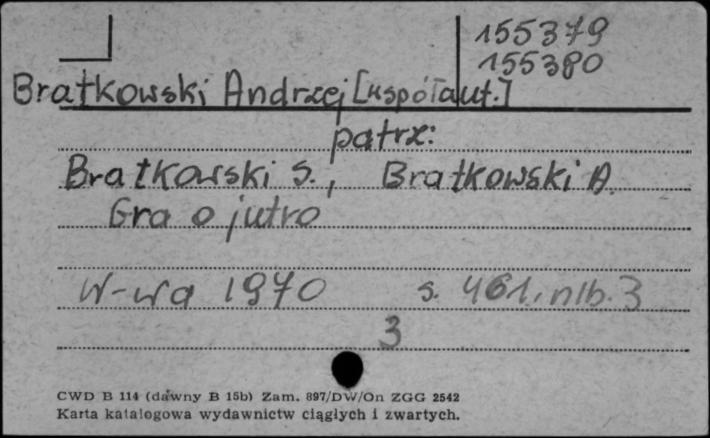 155379
155380
Bratkowski Andrzej [współaut.]
patrz:
Bratkowski S., Bratkowski A.
Gra o jutro
W-wa 1970 s. 461, nlb. 3
3
CWD B 114 (dawny B 15b) Zam. 897/DW/On ZGG 2542
Karta katalogowa wydawnictw ciągłych i zwartych.